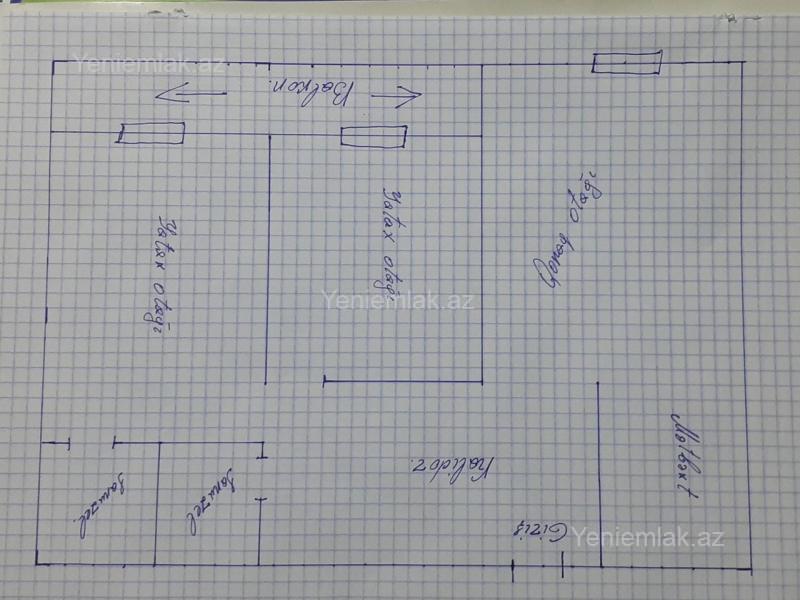 Yeniemlak.az
Balkon.
Yatax otağı
Yatax otağı
Qonaq otağı
Yeniemlak.az
Matbaxt
Kalidor.
Sanuzel.
Sanuzel
Giriş
Yeniemlak.az